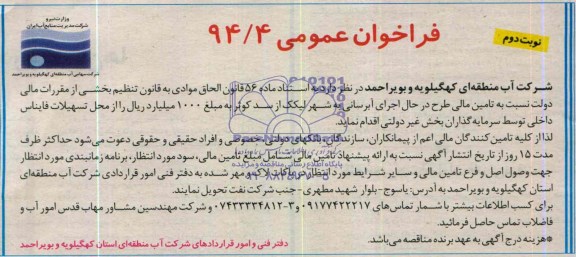 وزارت نیرو
شرکت مدیریت منابع آب ایران
شرکت سهامی آب منطقه‌ای کهگیلویه و بویراحمد
فراخوان عمومی ۹۴/۴
نوبت دوم
شرکت آب منطقه‌ای کهگیلویه و بویراحمد در نظر دارد به استناد ماده ۵۶ قانون الحاق موادی به قانون تنظیم بخشی از مقررات مالی
دولت نسبت به تامین مالی طرح در حال اجرای آبرسانی به شهر لیکک از سد کوثر به مبلغ ۱۰۰۰ میلیارد ریال را از محل تسهیلات فاینانس
داخلی توسط سرمایه گذاران بخش غیر دولتی اقدام نماید.
لذا از کلیه تامین کنندگان مالی اعم از پیمانکاران، سازندگان، بانکهای دولتی، خصوصی و افراد حقیقی و حقوقی دعوت می‌شود حداکثر ظرف
مدت ۱۵ روز از تاریخ انتشار آگهی نسبت به ارائه پیشنهاد تامین مالی شامل مبلغ تامین مالی، سود مورد انتظار، برنامه زمانبندی مورد انتظار
جهت وصول اصل و فرع تامین مالی و سایر شرایط مورد انتظار در پاکات لاک و مهر شده به دفتر فنی و امور قراردادی شرکت آب منطقه‌ای
استان کهگیلویه و بویراحمد به آدرس: یاسوج- بلوار شهید مطهری - جنب شرکت نفت تحویل نمایند.
برای کسب اطلاعات بیشتر با شمار تماس های ۰۹۱۷۷۴۲۲۲۱۷ و ۳-۰۷۴۳۳۳۳۴۸۱۲ و شرکت مهندسین مشاور مهاب قدس امور آب و
فاضلاب تماس حاصل فرمائید.
*هزینه درج آگهی به عهد برنده مناقصه می‌باشد.
دفتر فنی و امور قراردادهای شرکت آب منطقه‌ای استان کهگیلویه و بویراحمد